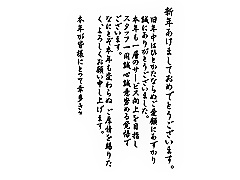 新年あけましておめでとうございます。
旧年中はひとかたならぬご愛顧にあずかり
誠にありがとうございました。
本年も一層のサービス向上を目指し
スタッフ一同誠心誠意努める覚悟で
ございます。
なにとぞ本年も変わらぬご厚情を賜りた
く、よろしくお願い申し上げます。
本年が皆様にとって幸多き